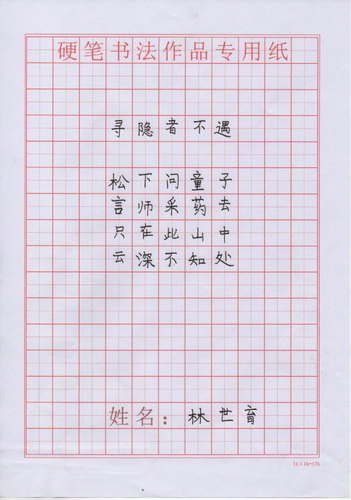 硬笔书法作品专用纸
寻隐者不遇
松下问童子
言师采药去
只在此山中
云深不知处
姓名：林世育
11×16=176